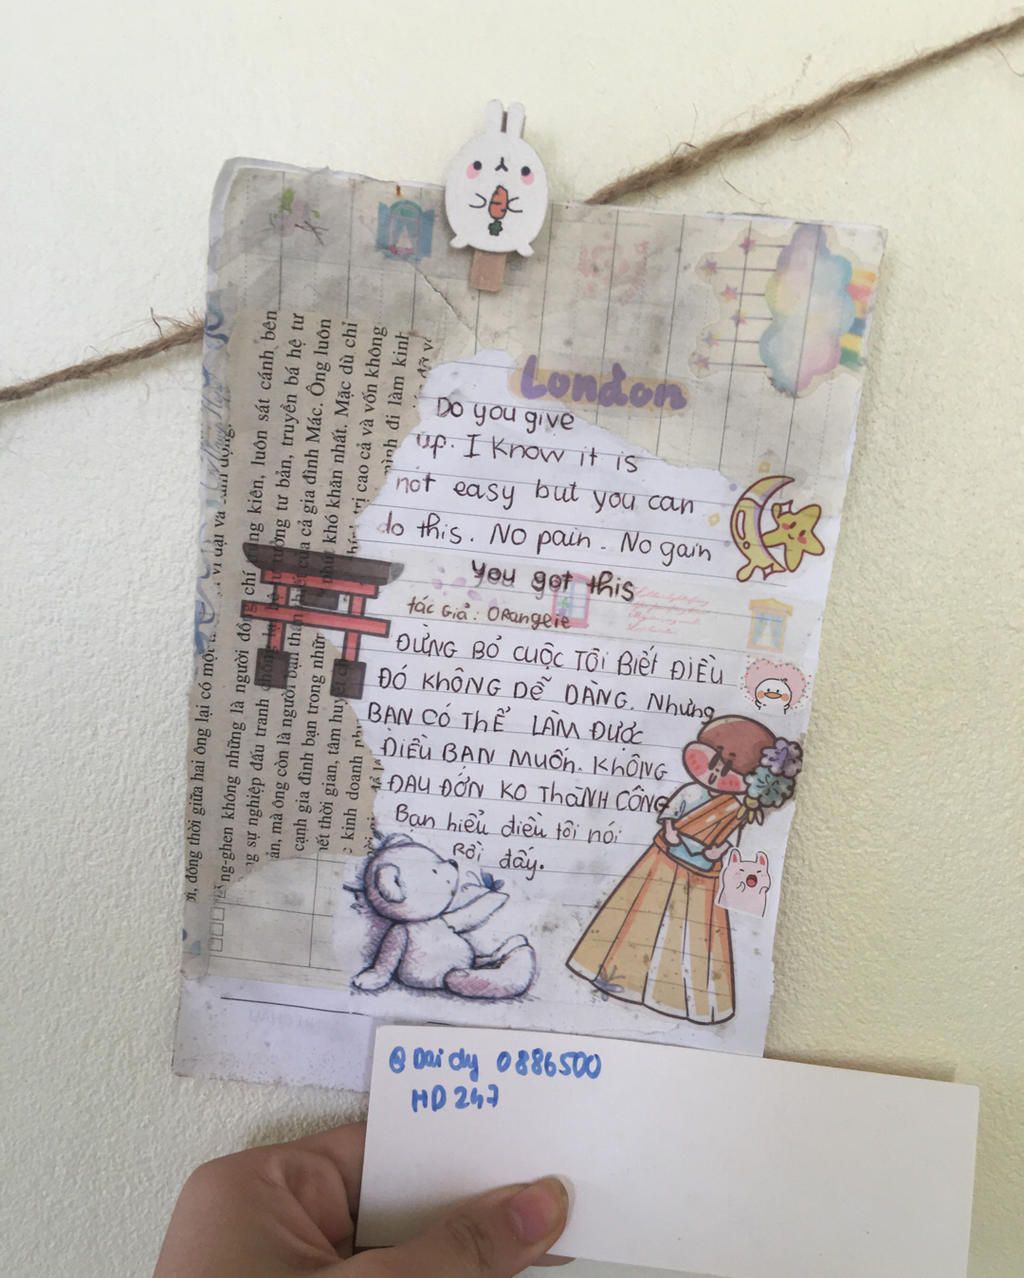 London
Do you give
up. I Know it is
not easy but you can
do this. No pain. No gain
you got this
tác giả: ORangeie
ĐỪNG BỎ CUỘC TÔI BIẾT ĐIỀU
ĐÓ KHÔNG DỄ DÀNG. Nhưng
BẠN CÓ THỂ LÀM ĐƯỢC
ĐIỀU BẠN MUỐN. KHÔNG
ĐAU ĐỚN KO THÀNH CÔNG
Bạn hiểu điều tôi nói
Rồi đấy.
đồng thời giữa hai ông lại có một
ng-ghen không những là người đồng chí kiên, luôn sát cánh bên
sự nghiệp đấu tranh tư tưởng tư bản, truyền bá hệ tư
mà ông còn là người bạn thân của cả gia đình Mác. Ông luôn
cạnh gia đình bạn trong những khó khăn nhất. Mặc dù chỉ
thời gian, tâm huyết trị cao cả và vốn không
kinh doanh mình đi làm kinh
@Daidy 0886500
HD 247